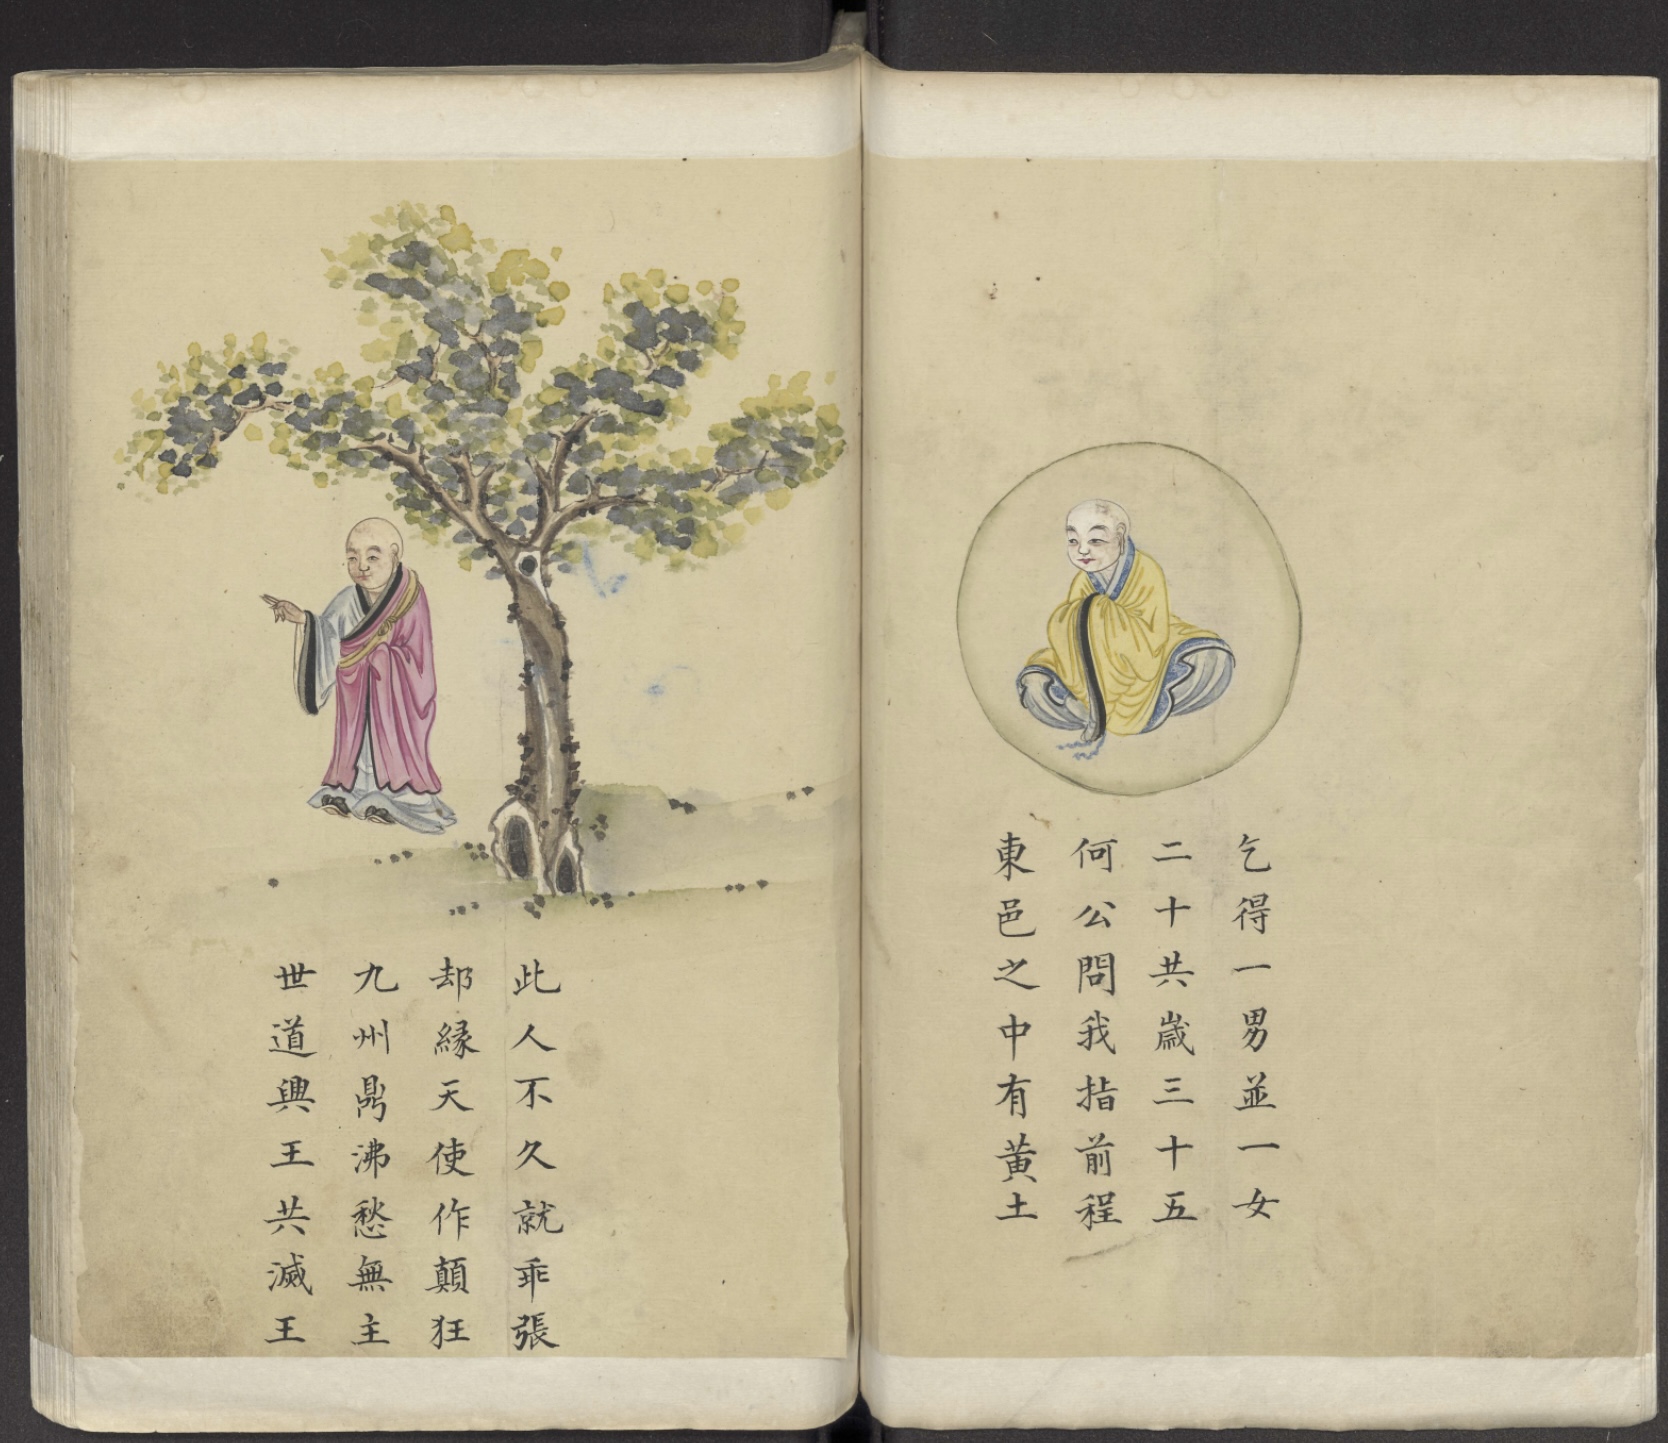 乞得一男並一女
二十共歲三十五
何公問我指前程
東邑之中有黃土
此人不久就乖張
却緣天使作顛狂
九州鼎沸愁無主
世道興王共滅王